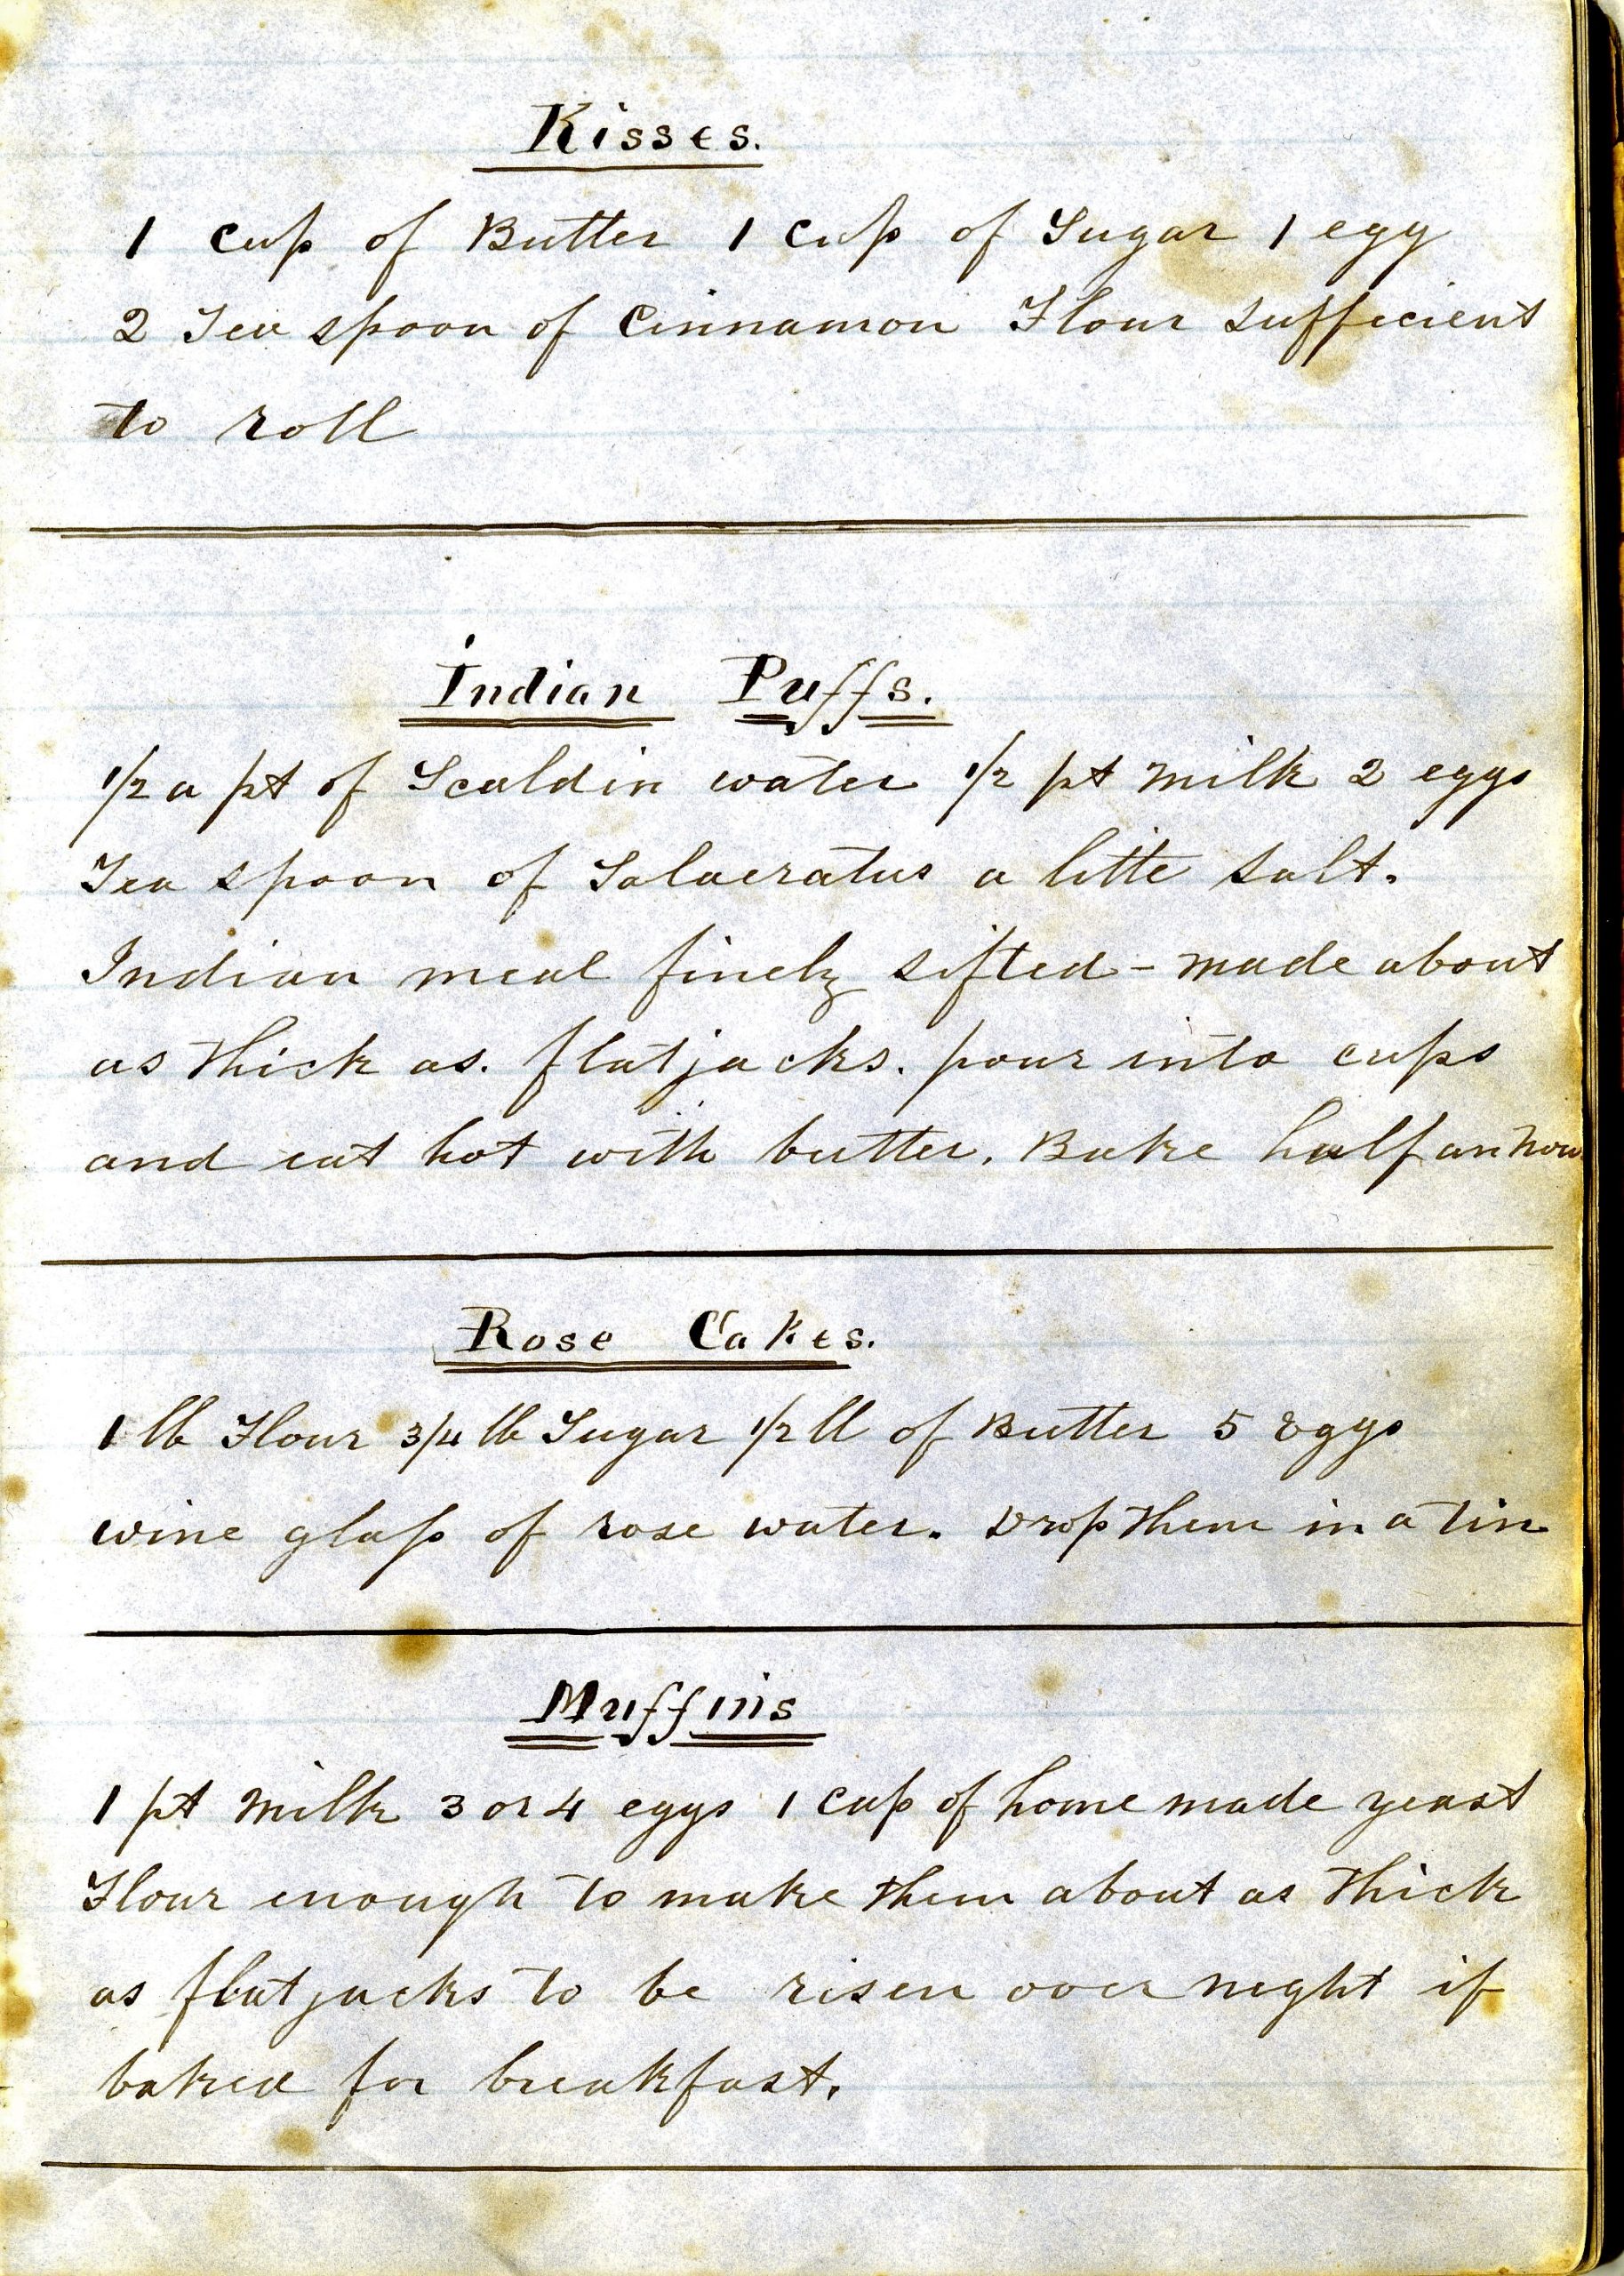 Kisses.
1 cup of Butter 1 cup of Sugar 1 egg
2 Tea spoon of Cinnamon Flour sufficient
to roll
Indian Puffs.
1/2 a pt of Scaldin water 1/2 pt milk 2 eggs
Tea spoon of Salaeratus a litte salt.
Indian meal finely sifted - made about
as thick as. flatjacks. pour into cups
and eat hot with butter. Bake half an hou
Rose Cakes.
1 lb Flour 3/4 lb Sugar 1/2 lb of Butter 5 Eggs
wine glass of rose water. Drop them in a tin
Muffins
1 pt milk 3 or 4 eggs 1 cup of home made yeast
Flour enough to make them about as thick
as flatjacks to be risen over night if
baked for breakfast.